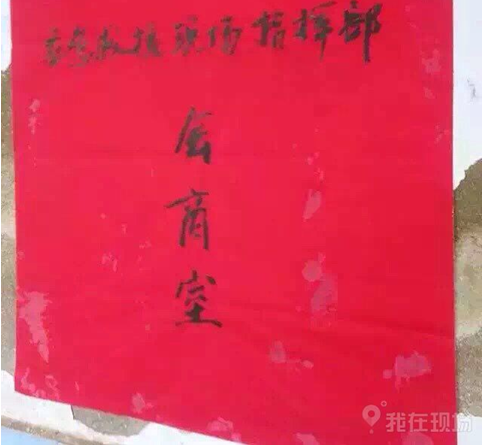 应急救援现场指挥部
会商室
我在现场